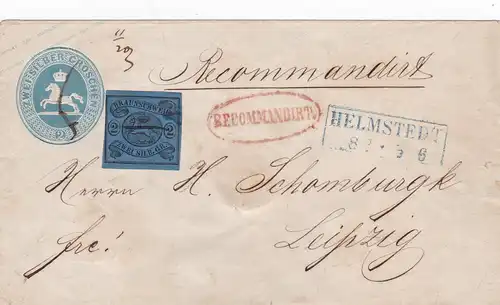 ZWEI SILBER GROSCHEN
11/29
Recommandirt
BRAUNSCHWEIG
2 2
ZWEI SILB. GR.
RECOMMANDIRT.
HELMSTEDT
8
6
Herrn H. Schomburgk
frc!
Leipzig